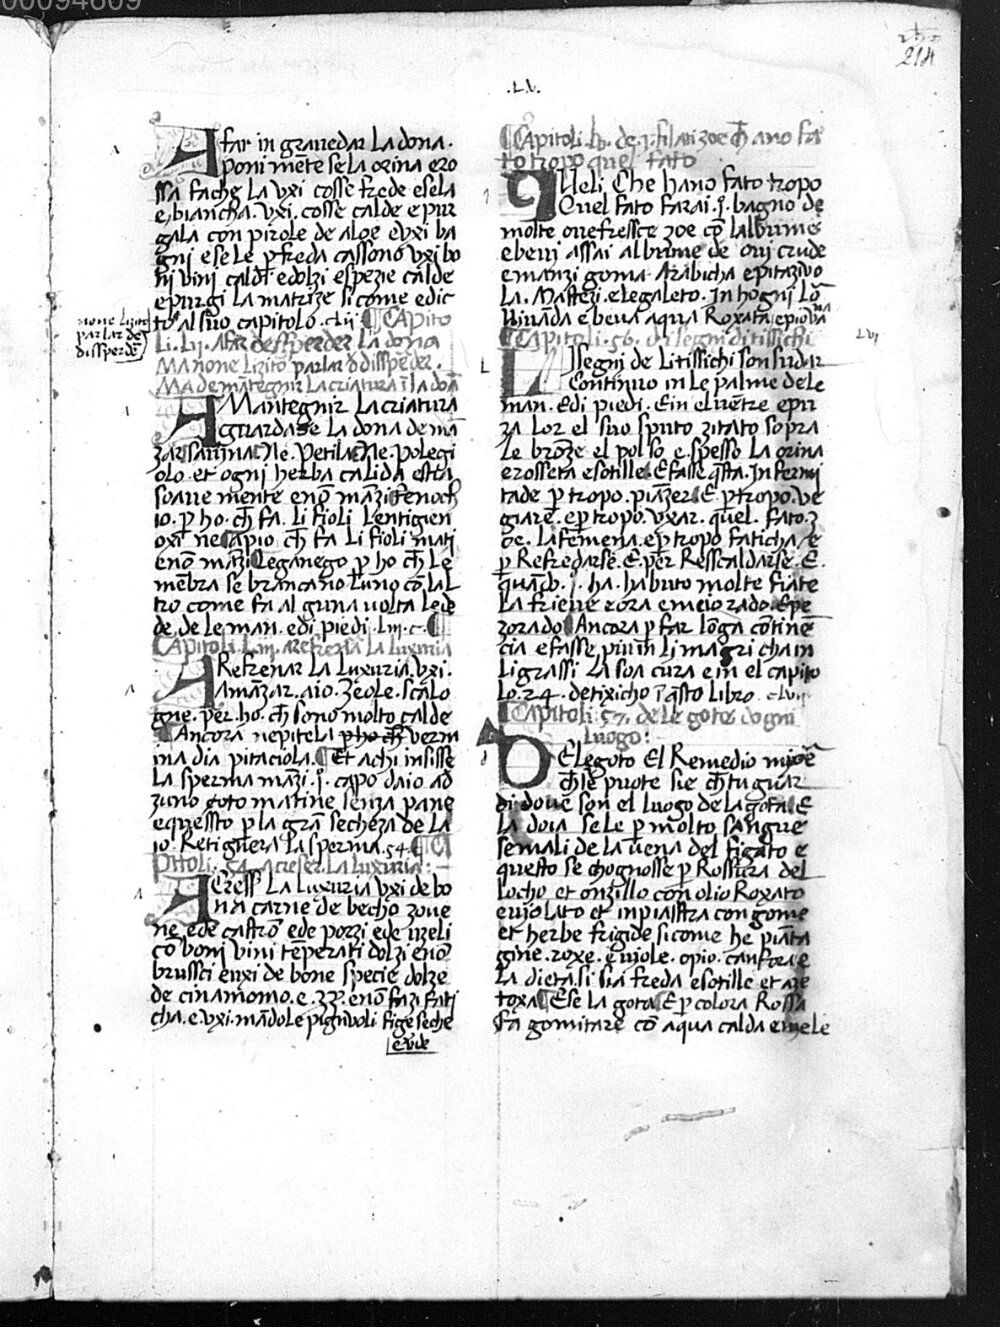 00094609
214
.LV.
A far in gravedar La dona.
poni mēte se la orina e ro
ssa fache La vxi cosse frede e se la
e, biancha. vxi. cosse calde e pur
gala con pirole de aloe e vxi ba
gni e se le p freda cassone vxi bo
ni vini caldi e dolzi e spezie calde
e purgi la matrize si come e dic
to al suo capitolo. clij ¶ Capito
none Lizito
parlar de
dissperdē
Li. Lij. A far dessperder La dona
Ma none Lizito parlar d dissperder.
Ma de mātegnir La criatura ī la doā
A Mantegnir La criatura
e guardase La dona de mā
zar ¶ ne. petila ¶ ne. polegi
olo. et ogni herba calida e sta
soave mente e nō māzi fenoch
io. p ho. ch̄ fa. Li fioli Lentigien
oxi ne ¶ apio ch̄ fa Li fioli mati
e nō māzi ¶ eganego p ho ch̄ Le
mēbra se brancano Luno cō lal
tro come fa al guna uolta Le de
de, de le man. e di piedi. Liij. c. ¶
Capitoli. Liij. a refrenar la Luxuria
A Refrenar La Luxuria. vxi.
a māzar. aio. zeole. scalo
gne. per. ho. ch̄ sono molto calde
¶ Ancora nepitela p ho ch̄ verm
ina dia pitaciola. ¶ Et achi insisse
La sperma māzi. j. capo daio ad
zuno coto matine senza pane
e quessto p la grā secheza de la
io. Retignera La sperma. 54. ¶ C
pittoli. 54. a creser. La Luxuria:
A Cress La Luxuria vxi de bo
na carne de becho zove
ne e de castrō e de pozzi e de vzeli
cō boni vini tēperati dolzi e nō
brussci e vxi de bone specie dolze
de cinamomo. e. zz. e nō fazi fati
cha. e vxi. mādole pignuoli fige seche
e vide
¶ Capitoli. lv. de. j. filati zoe ch̄ ano fa
to tropo quel fato
QUeli. Che hano fato tropo
Quel fato farai. j. bagno de
molte ove fressce zoe cō lalbume
e bevi assai albume de ovi crude
e manzi goma Arabicha e pitazivo
La. Mastezi. e legaleto. In hogni Lō
vivāda e beva aqua Roxata e piovana
LVI
¶ Capitoli. 56. di segni di tissichi
LI segni de Li tissichi son sudar
Continuo in Le palme de le
man. e di piedi. E in el vētre e pu
za Lor el suo sputo zitato sopra
Le broze el polso e. spesso La orina
e rosseta e sotille E fasse q̄sta. In fermi
tade p tropo. piāzer. E. p tropo. ve
giare. e p tropo. vxar. quel. fato. z
oe. La femena. e p tropo faticha / e
p Refredarse. E. per Resscaldarse. E.
quādo. j. ha. habuto molte fiate
La frieve e ora e meio rado. E pe
zorado ¶ Ancora p far Lōga cōtinē
cia e fasse piu in Li magri cha in
Li grassi La soa cura e in el capito
Lo. 24. de tixicho ī q̄sto libro. cLvij.
¶ Capitoli. 57. de le gote dogni
luogo:
DE Le gote El Remedio mioē
ch̄ se puote sie ch̄ tu guar
di dove son el luogo de la gota. E
La doia se le p molto sangue
semali de la vena del figato e
questo se chognosse p Rossura del
locho et onzillo con olio Roxato
e violato et inpiasstra con gome
et herbe frigide si come he piāta
gine. roxe. e viole. opio. canfora e
La dieta. si sia freda e sotille et aze
toxa ¶ E se la gota ¶ E p colora Rossa
fa gomitare cō aqua calda e mele